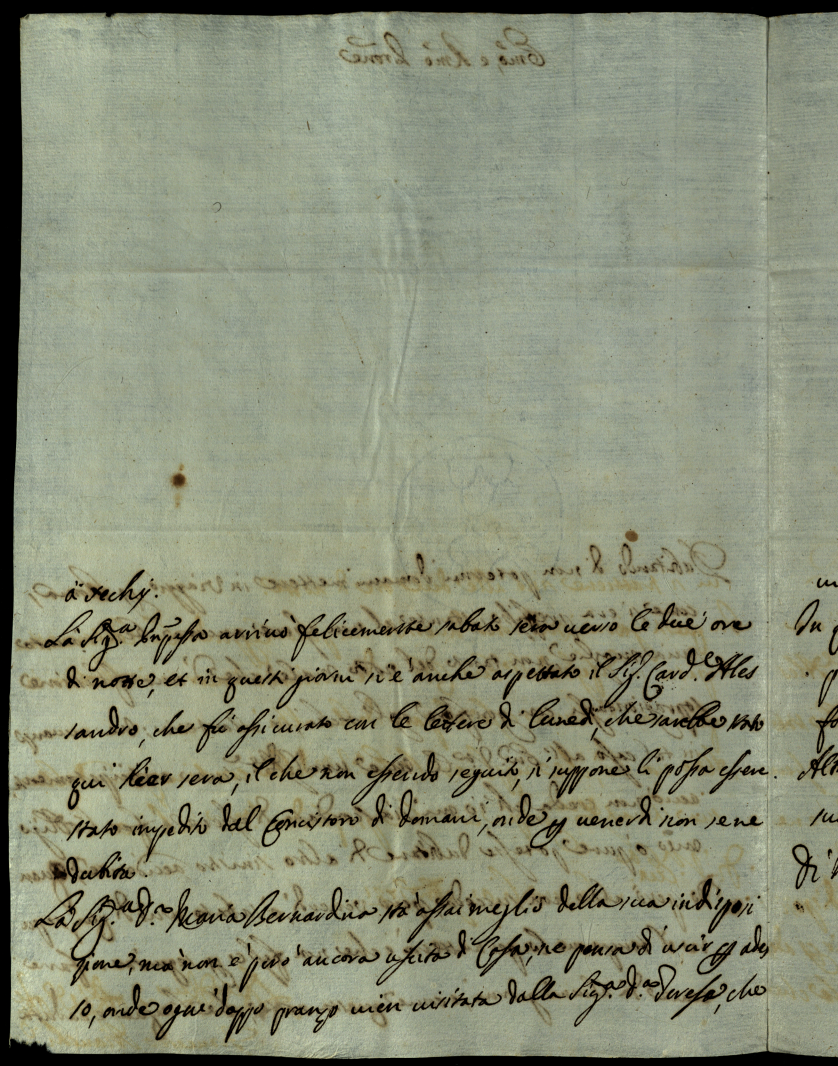 à vechj.
La Sig.ª Prñpessa arrivò felicemente sabato sera verso le due ore
di notte, et in questi giorni si è anche aspettato il Sig. Card.le Ales
sandro, che fù assicurato con le lettere di lunedì, che sarebbe stato
qui hier sera, il che non essendo seguito, si suppone li possa essere
stato impedito dal Concistoro di domani, onde p venerdì non se ne
dubita.
La Sig.ª D.ª Maria Bernardina stà assai meglio della sua indisposi
zione, mà non è però ancora uscita di Casa, ne pensa di uscir p ades
so, onde ogni doppo pranzo vien visitata dalla Sig.ª D.ª Teresa, che